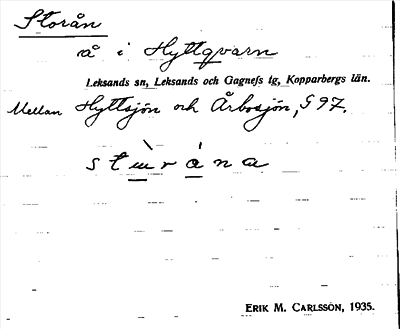 Storån
å i Hyttqvarn
Leksands sn, Leksands och Gagnefs tg, Kopparbergs län.
Mellan Hyttsjön och Årbosjön, S 97.
ERIK M. CARLSSON, 1935.